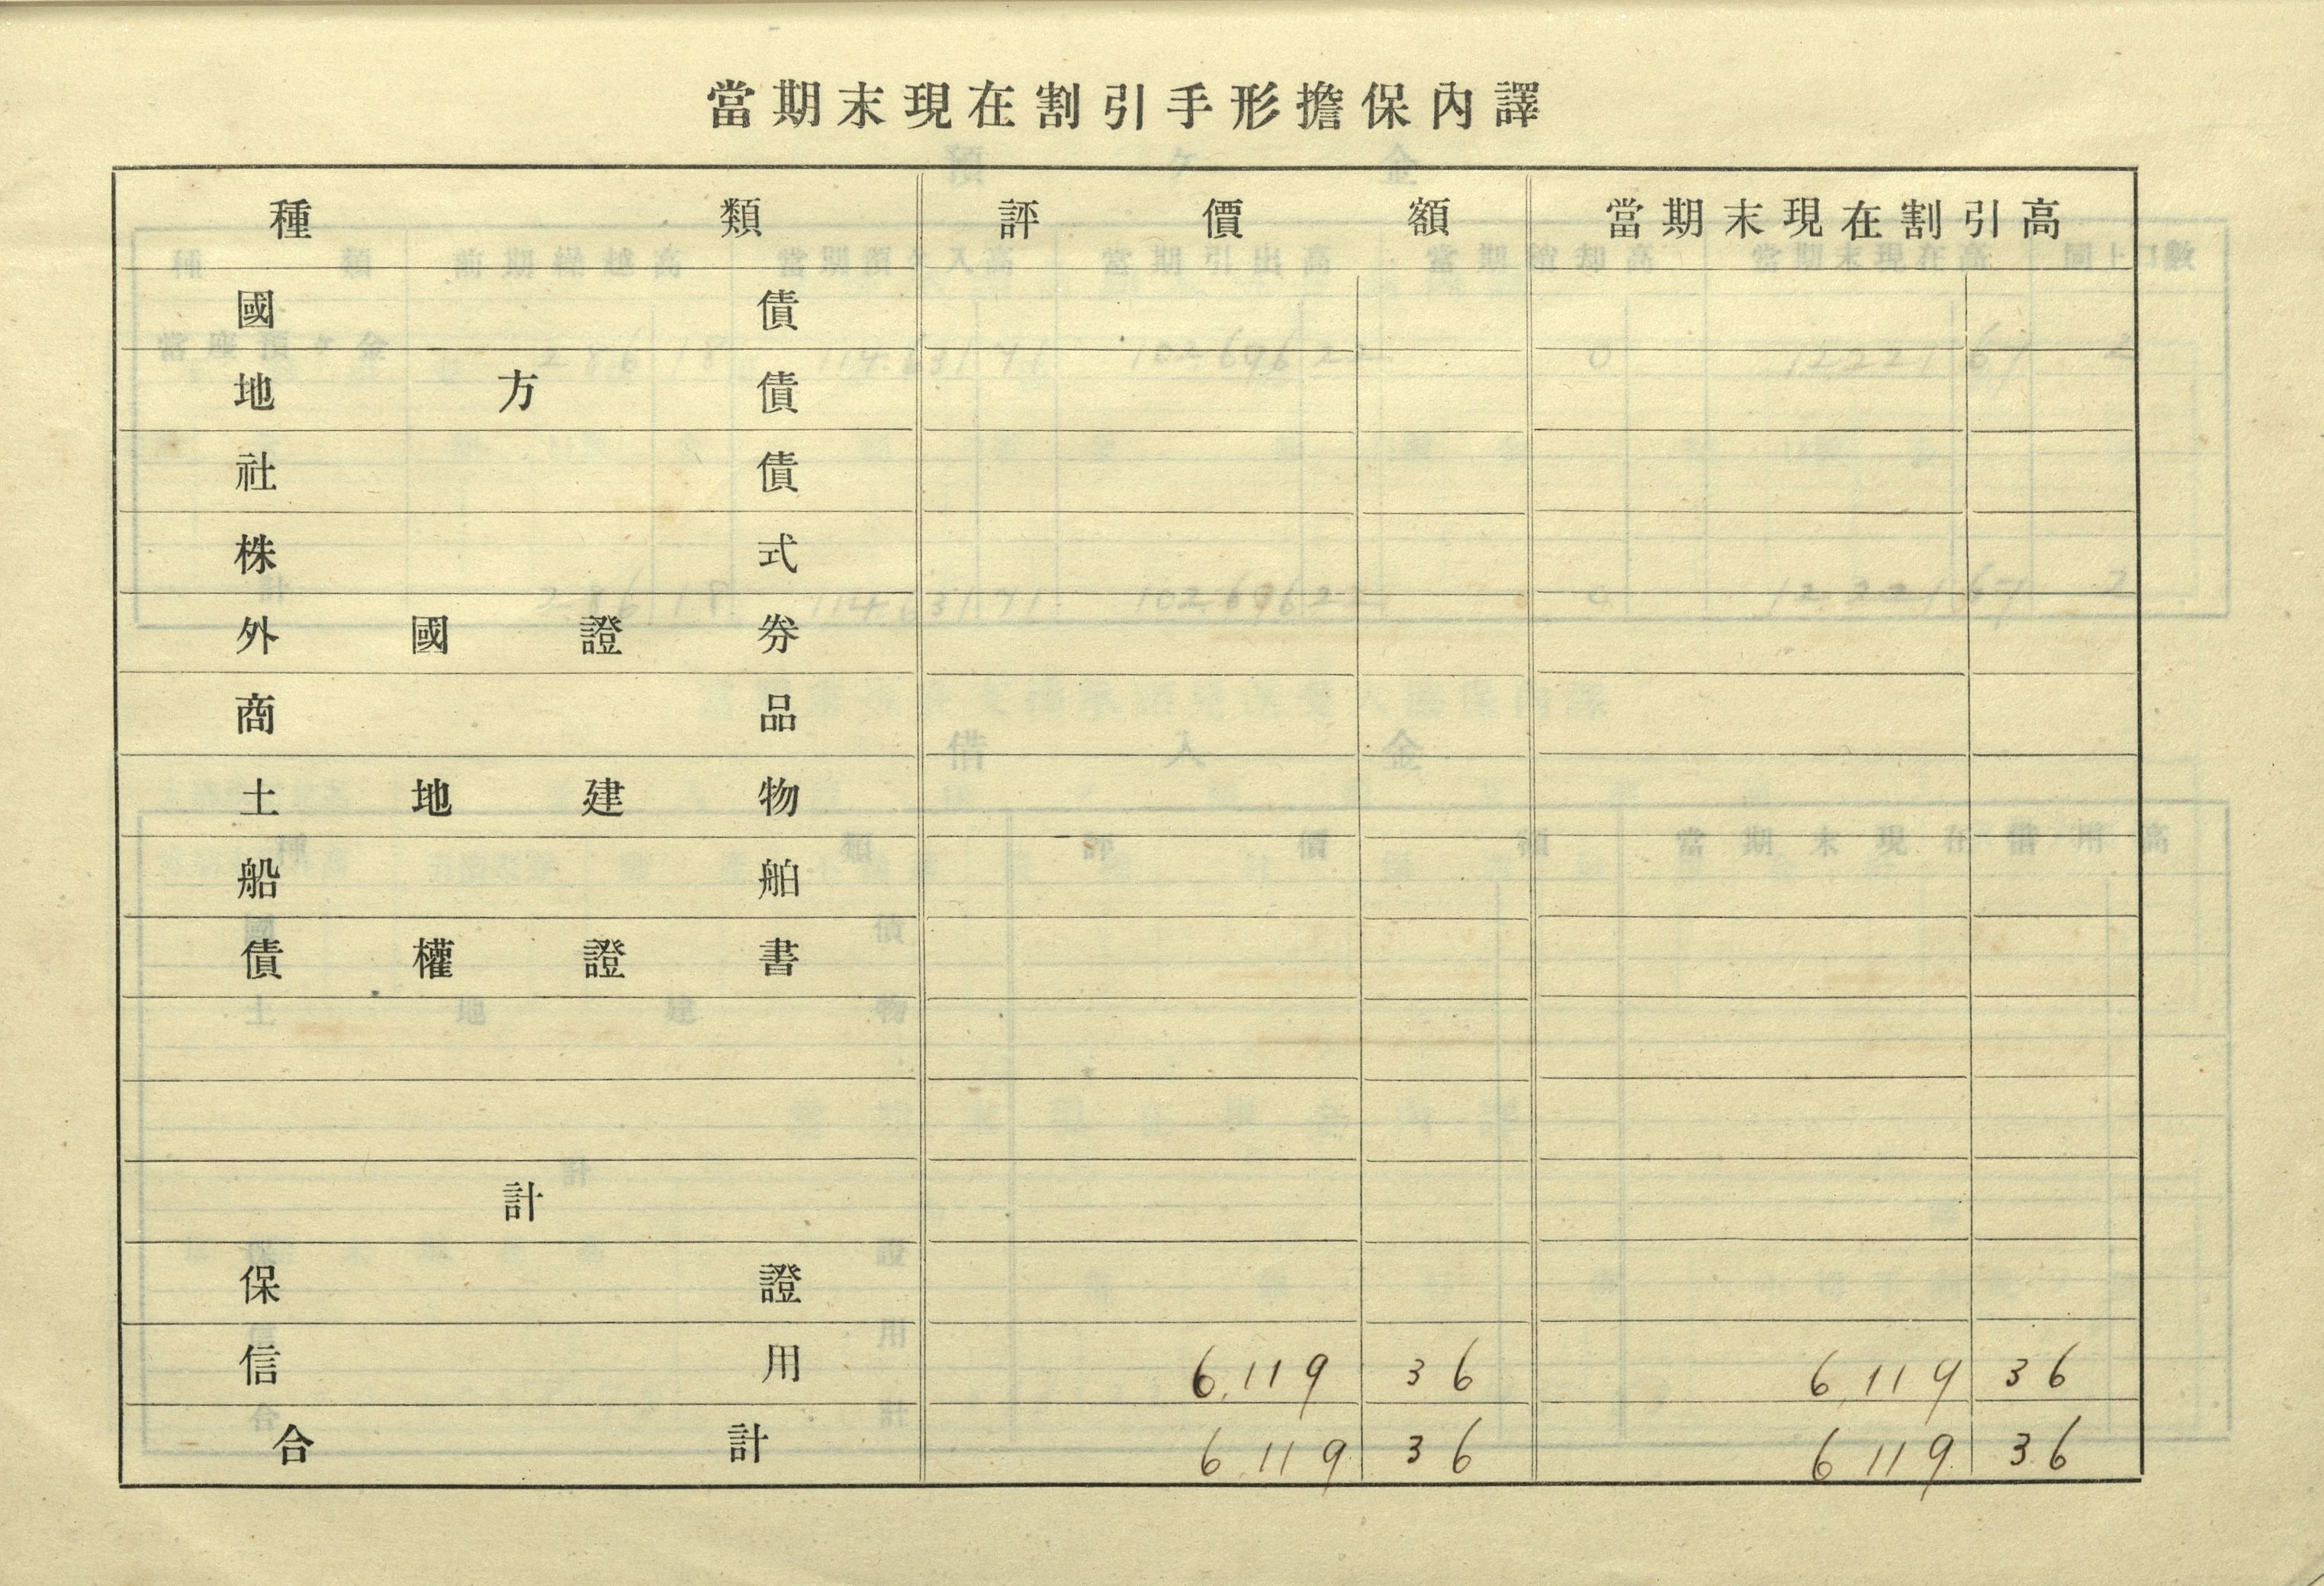 當期末現在割引手形擔保內譯
種類 評價額 當期末現在割引高
國債
地方債
社債
株式
外國證券
商品
土地建物
船舶
債權證書
計
保證
信用 6,119 36 6,119 36
合計 6,119 36 6,119 36